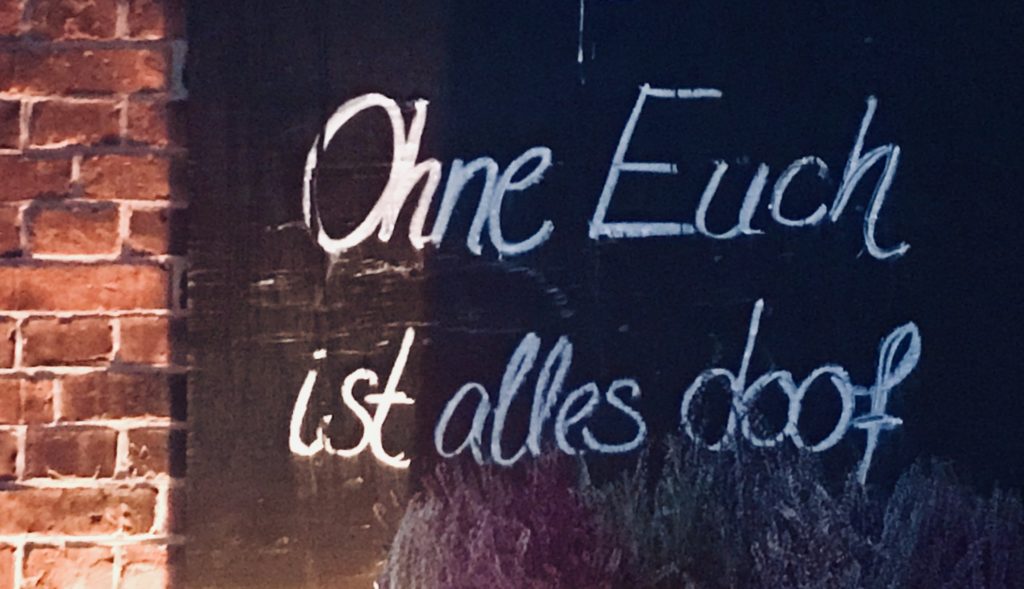 Ohne Euch
ist alles doof